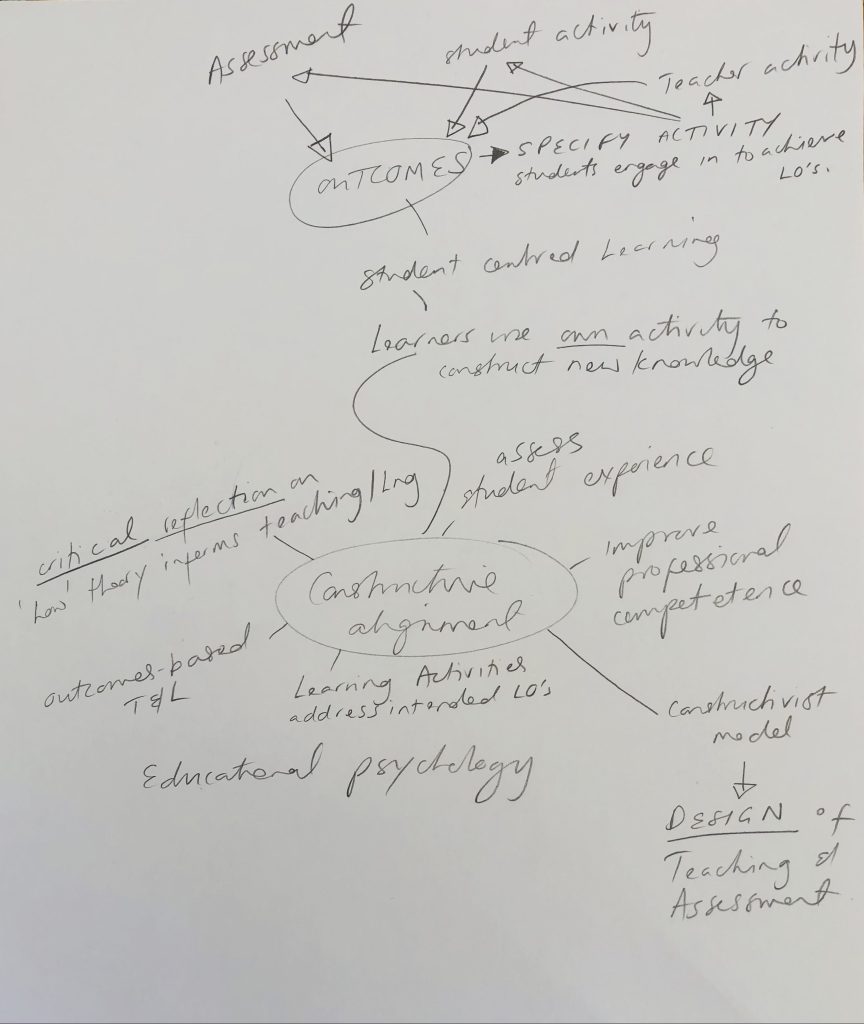 Assessment
student activity
Teacher activity
OUTCOMES
SPECIFY ACTIVITY
students engage in to achieve
LO's.
student centred Learning
Learners use own activity to
construct new knowledge
assess
student experience
critical reflection on
'how' theory informs teaching/Lng
Improve
professional
competetence
Constructive
alignment
outcomes-based
T&L
Learning Activities
address intended LO's
Constructivist
model
Educational psychology
DESIGN of
Teaching &
Assessment